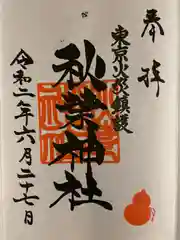 奉拝
東京火防鎮護
秋葉神社
令和二年六月二十七日